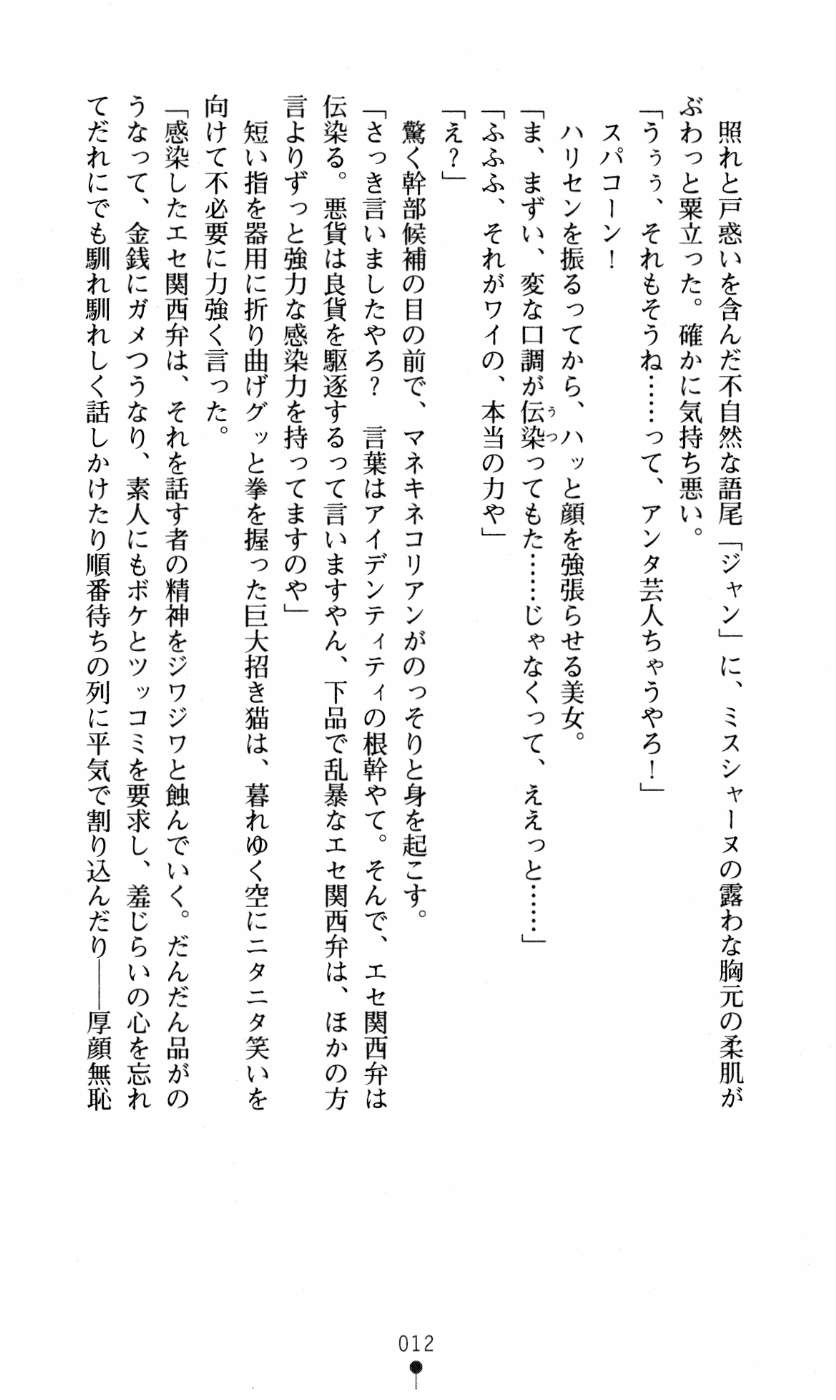 照れと戸惑いを含んだ不自然な語尾「ジャン」に、ミスシャーヌの露わな胸元の柔肌が
ぶわっと粟立った。確かに気持ち悪い。
「うぅぅ、それもそうね……って、アンタ芸人ちゃうやろ！」
スパコーン！
ハリセンを振るってから、ハッと顔を強張らせる美女。
「ま、まずい、変な口調が伝染ってもた……じゃなくって、ええっと……」
うつ
「ふふふ、それがワイの、本当の力や」
「え？」
驚く幹部候補の目の前で、マネキネコリアンがのっそりと身を起こす。
「さっき言いましたやろ？　言葉はアイデンティティの根幹やて。そんで、エセ関西弁は
伝染る。悪貨は良貨を駆逐するって言いますやん、下品で乱暴なエセ関西弁は、ほかの方
言よりずっと強力な感染力を持ってますのや」
短い指を器用に折り曲げグッと拳を握った巨大招き猫は、暮れゆく空にニタニタ笑いを
向けて不必要に力強く言った。
「感染したエセ関西弁は、それを話す者の精神をジワジワと蝕んでいく。だんだん品がの
うなって、金銭にガメつうなり、素人にもボケとツッコミを要求し、羞じらいの心を忘れ
てだれにでも馴れ馴れしく話しかけたり順番待ちの列に平気で割り込んだり――厚顔無恥
012